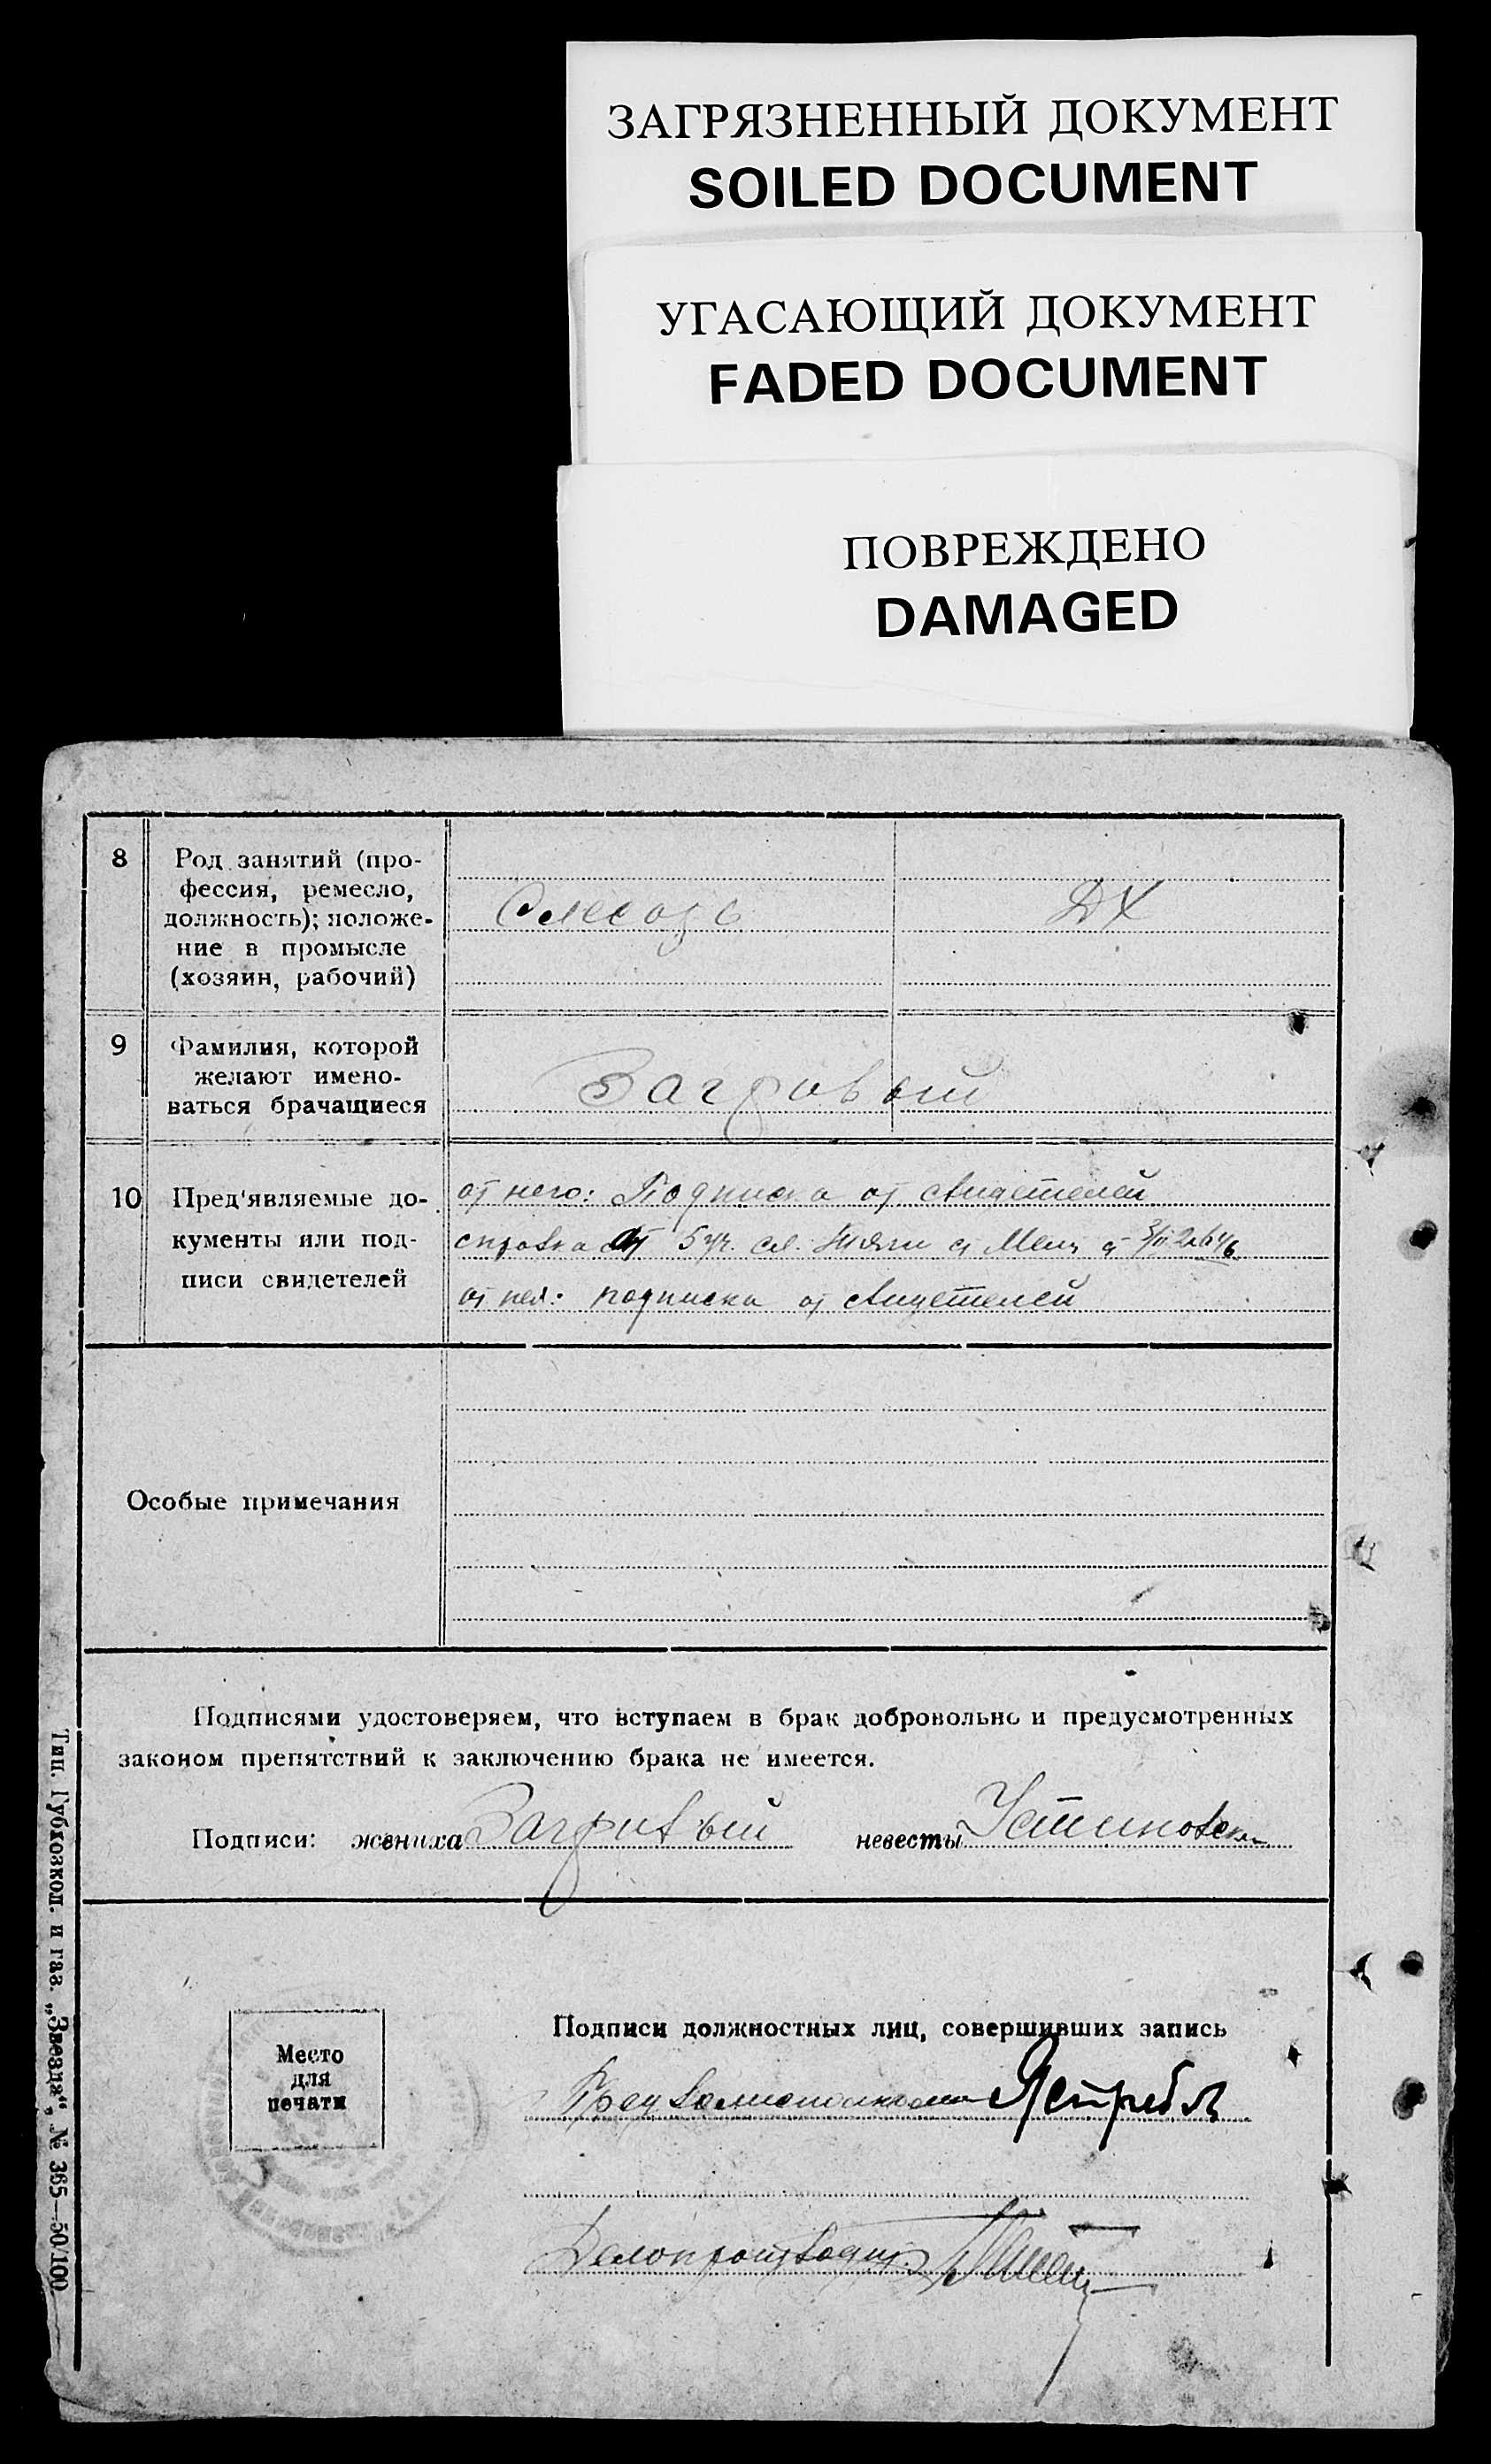 ЗАГРЯЗНЕННЫЙ ДОКУМЕНТ
SOILED DOCUMENT
УГАСАЮЩИЙ ДОКУМЕНТ
FADED DOCUMENT
ПОВРЕЖДЕНО
DAMAGED
8
Род занятий (про-
фессия, ремесло,
должность); положе-
ние в промысле
(хозяин, рабочий)
Слесарь
ДХ
9
Фамилия, которой
желают имено-
ваться брачащиеся
10
Пред'являемые до-
кументы или под-
писи свидетелей
от него: Подписка от свидетелей
справка от 5 уч. сл.
от нея: подписка от свидетелей
Особые примечания
Подписями удостоверяем, что вступаем в брак добровольно и предусмотренных
законом препятствий к заключению брака не имеется.
Подписи: жениха
невесты
Место
для
печати
Подписи должностных лиц, совершивших запись
Пред Волисполкома
Делопроизводит.
Тип. Губкозкол. и газ. „Звезда“, № 365—50/100